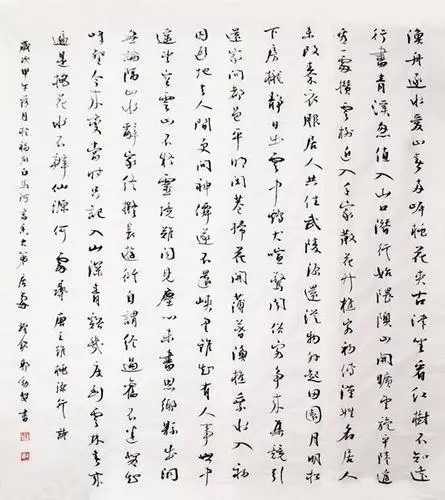 漁舟逐水愛山春兩岸桃花夾古津坐看紅樹不知遠
行盡青溪忽值人山口潛行始隈隩山開曠望旋平陸遥
看一處攢雲樹近入千家散花竹樵客初傳漢姓名居人
未改秦衣服居人共住武陵源還從物外起田園月明松
下房櫳靜日出雲中雞犬喧驚聞俗客爭來集競引
還家問都邑平明閭巷掃花開薄暮漁樵乘水入初
因避地去人間更問神仙遂不還峽裏誰知有人事世中
遥望空雲山不疑靈境難聞見塵心未盡思鄉縣出洞
無論隔山水辭家終擬長遊衍自謂經過舊不迷安知
峰壑今來變當時只記入山深青谿幾度到雲林春來
遍是桃花水不辨仙源何處尋唐王維桃源行詩
歲次甲午月於福州白馬河書